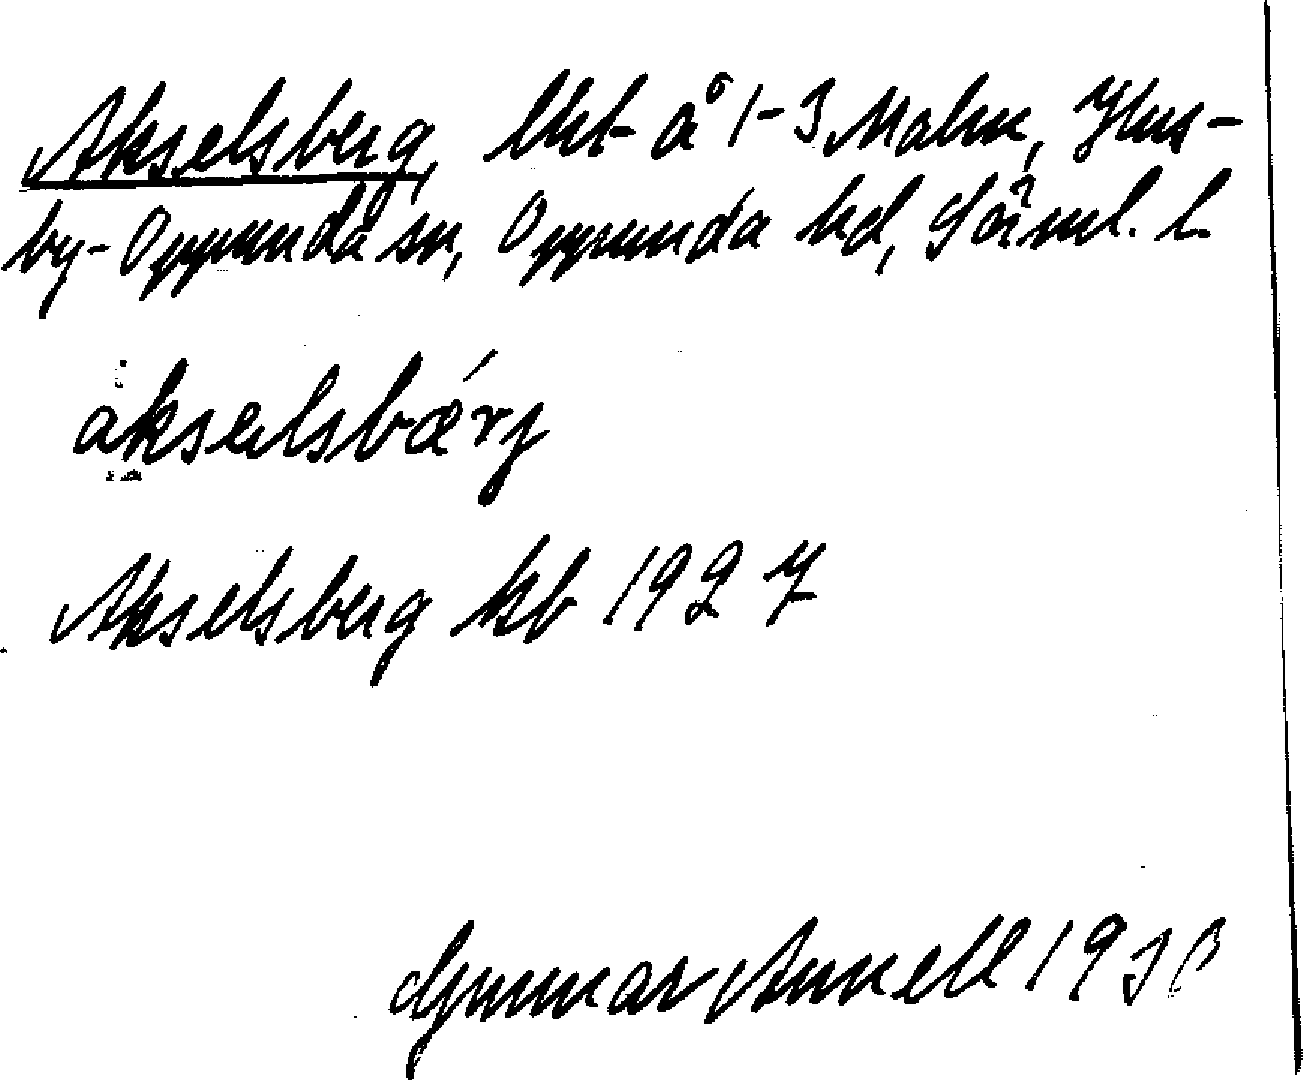 Akselsberg, lht å 1-3 Malm, Hus-
by-Oppunda sn, Oppunda hd, Sörml. l.
akselsbærj
Akselsberg kb 1927
Gunnar Annell